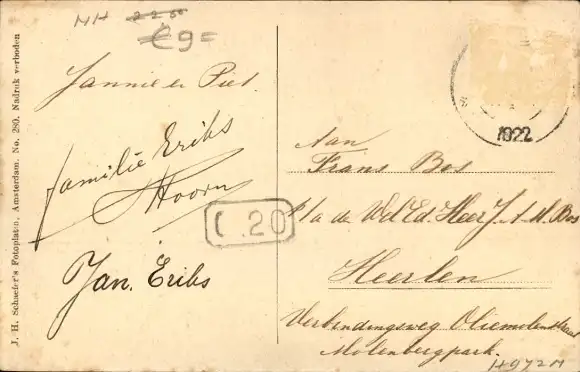 MH 225
€9=
Jannie en Piet.
familie Eriks
Hoorn
Jan. Eriks
J. H. Schaefer's Fotoplaten, Amsterdam. No. 280. Nadruk verboden
C 20
1922
Aan
Frans Bos
p/a de Wel Ed. Heer J. A. H. Bos
Heerlen
Verbindingsweg Oliemolenstraat
Molenbergpark.
H972M